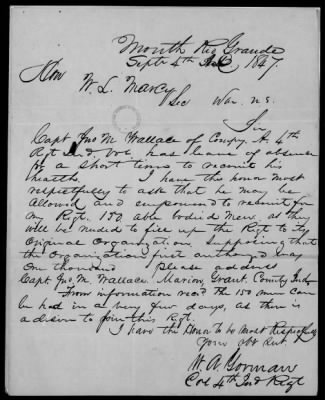 Mouth Rio Grande
Sept 4th 1847.
Hon
W. L. Marcy
Sec War. U.S.
Sir
Capt Jno M. Wallace of Compy. A. 4th
Rgt Ind. Vols has leave of absence
for a short time to recruit his
health. I have the honor most
respectfully to ask that he may be
allowed and empowered to recruit for
my Rgt. 150 able bodied men, as they
will be needed to fill up the Rgt to its
Original Organization. Supposing that
the Organization first authorized was
One thousand please address
Capt Jno. M. Wallace. Marion, Grant County Ind
From information recd the 150 men can
be had in a very few days, as there is
a desire to join this Rgt.
I have the Honor to be most Respectfully
Your obt Svt.
W. A. Gorman
Col 4th Ind Rgt